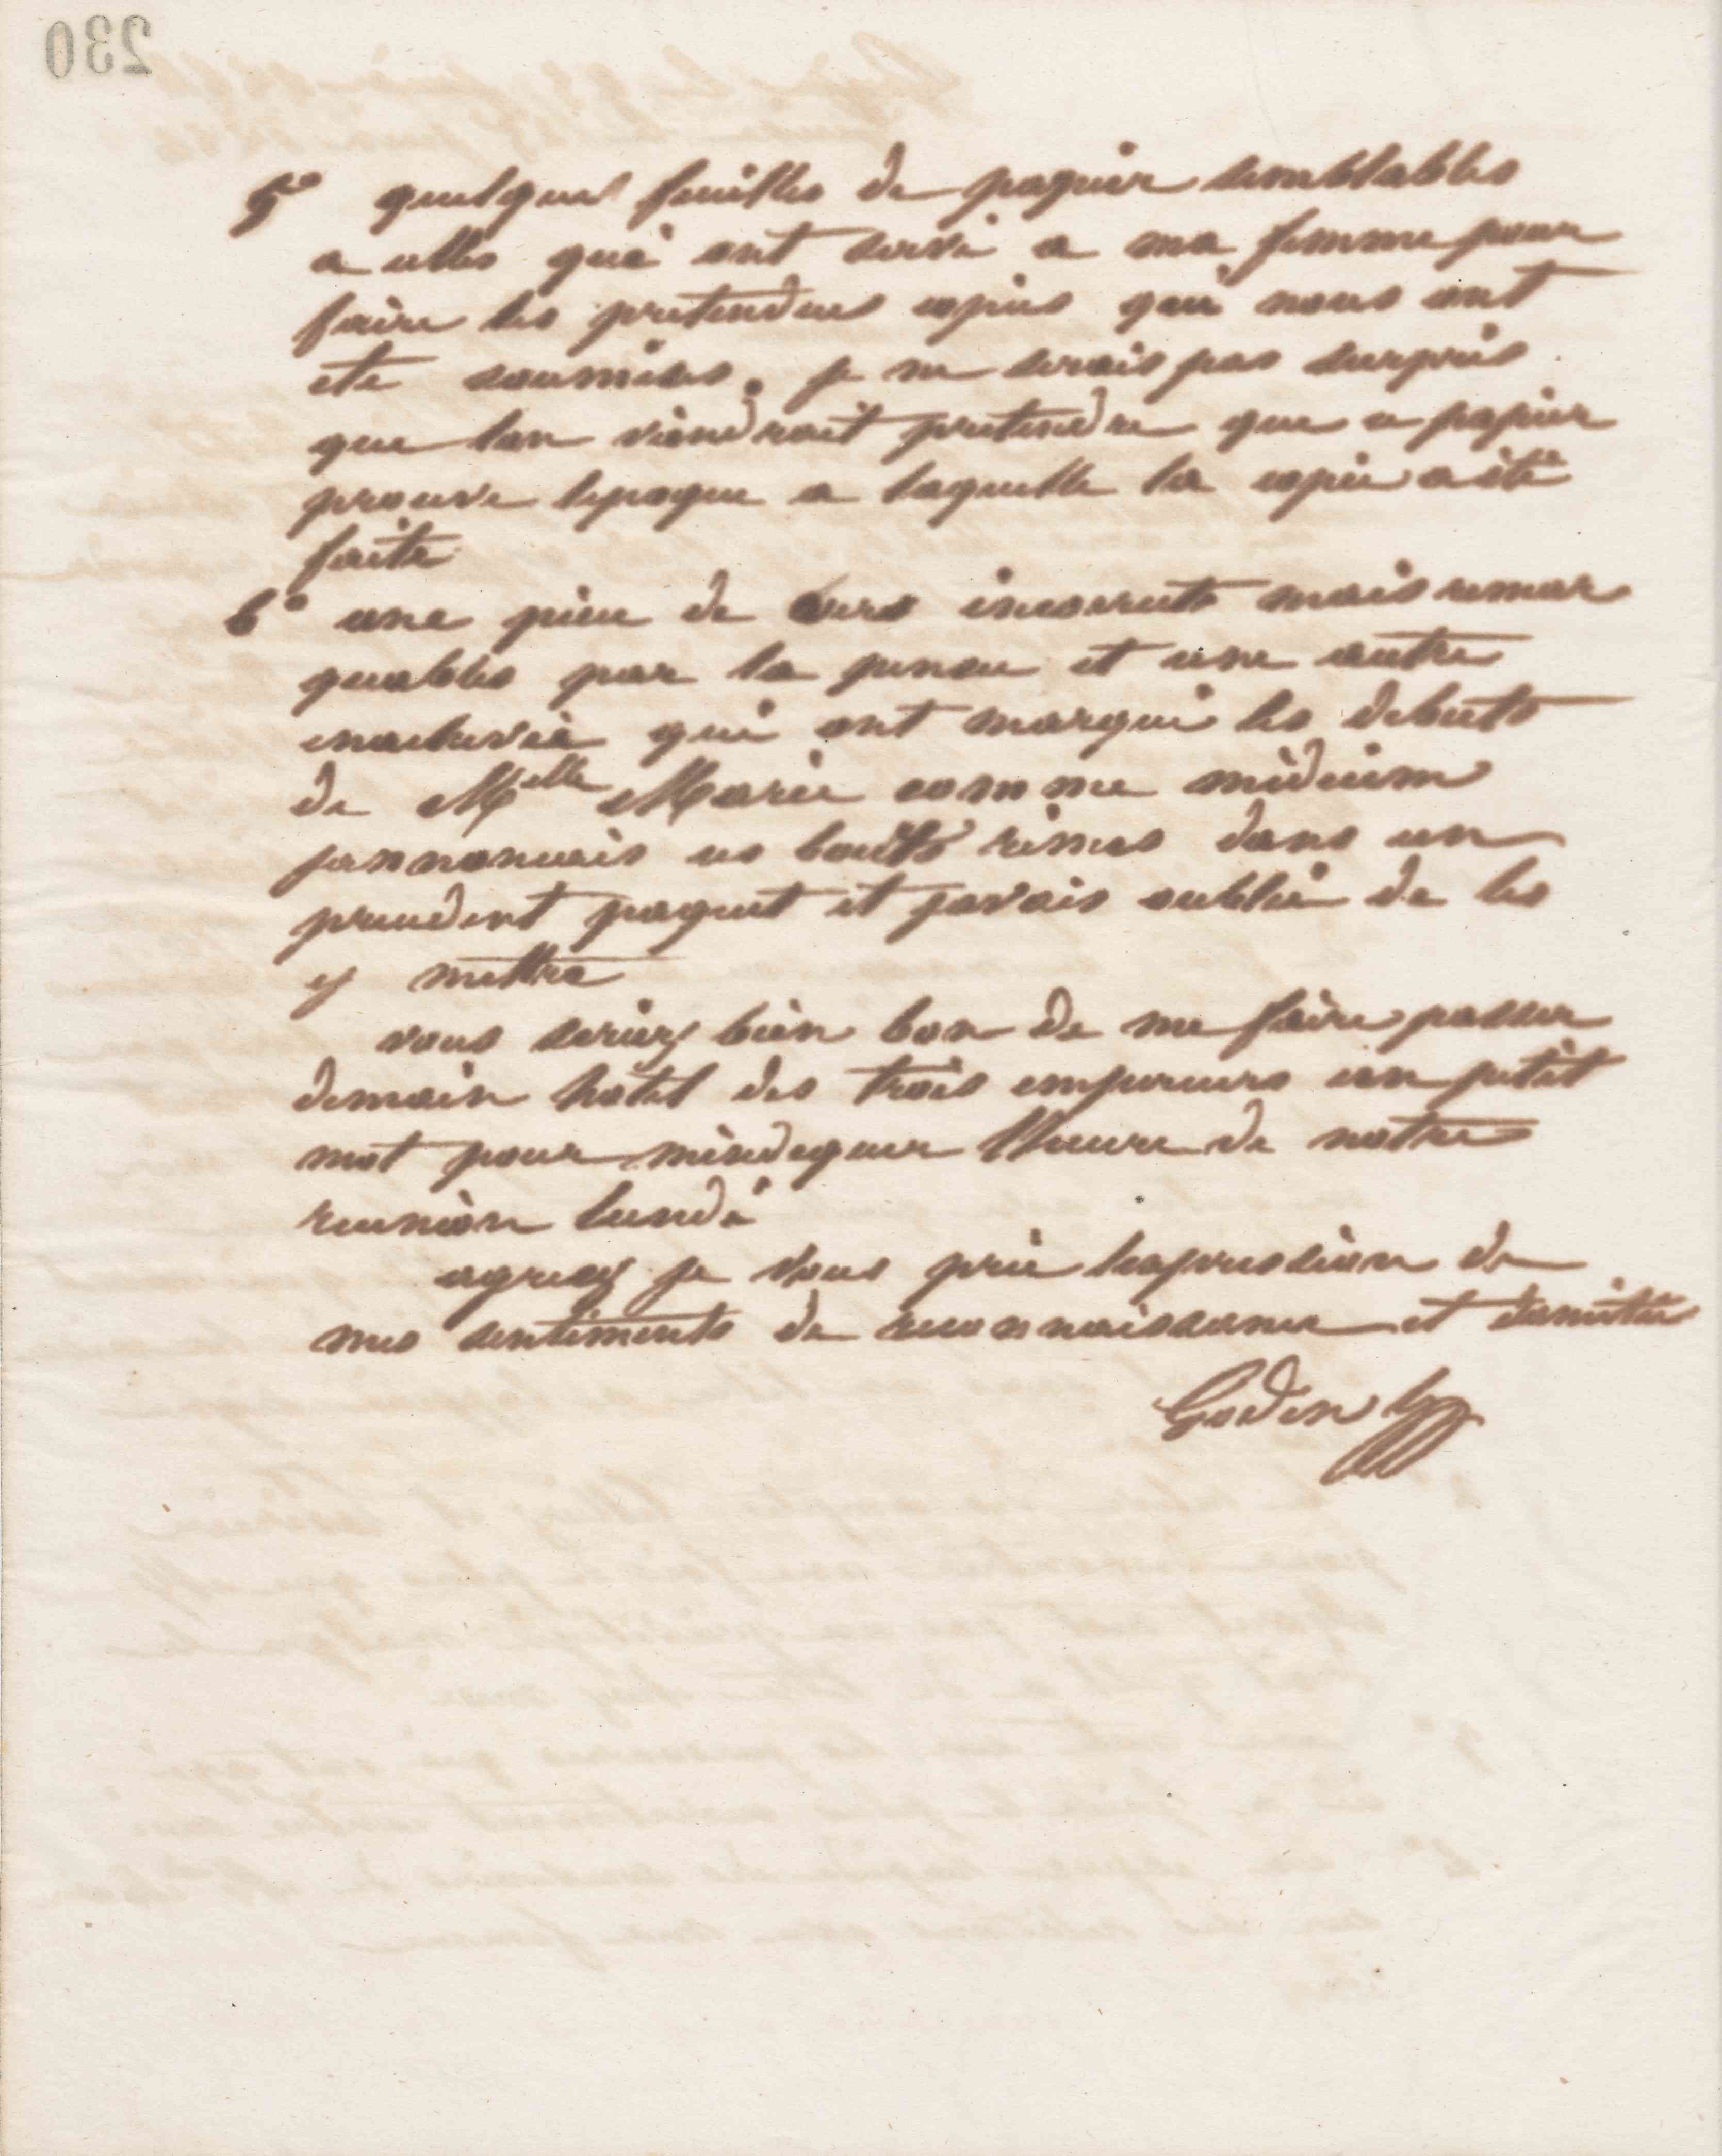 230
5° quelques feuilles de papier semblables
a celles qui ont servi a ma femme pour
faire les pretendues copies qui nous ont
ete soumises. je ne serais pas surpris
que lon viendrait pretendre que ce papier
prouve lepoque a laquelle la copie a été
faite
6° une piece de vers incorrects mais remar
quables par la pensee et une autre
inachevée qui ont marqué les debuts
de Melle Marie comme médium
jannoncais ces bouts rimes dans un
precedent paquet et javais oublié de les
y mettre
vous seriez bien bon de me faire passer
demain hotel des trois empereurs un petit
mot pour mindiquer lheure de notre
reunion lundi
agreez je vous prie lexpression de
mes sentiments de reconnaissance et damitié
Godin